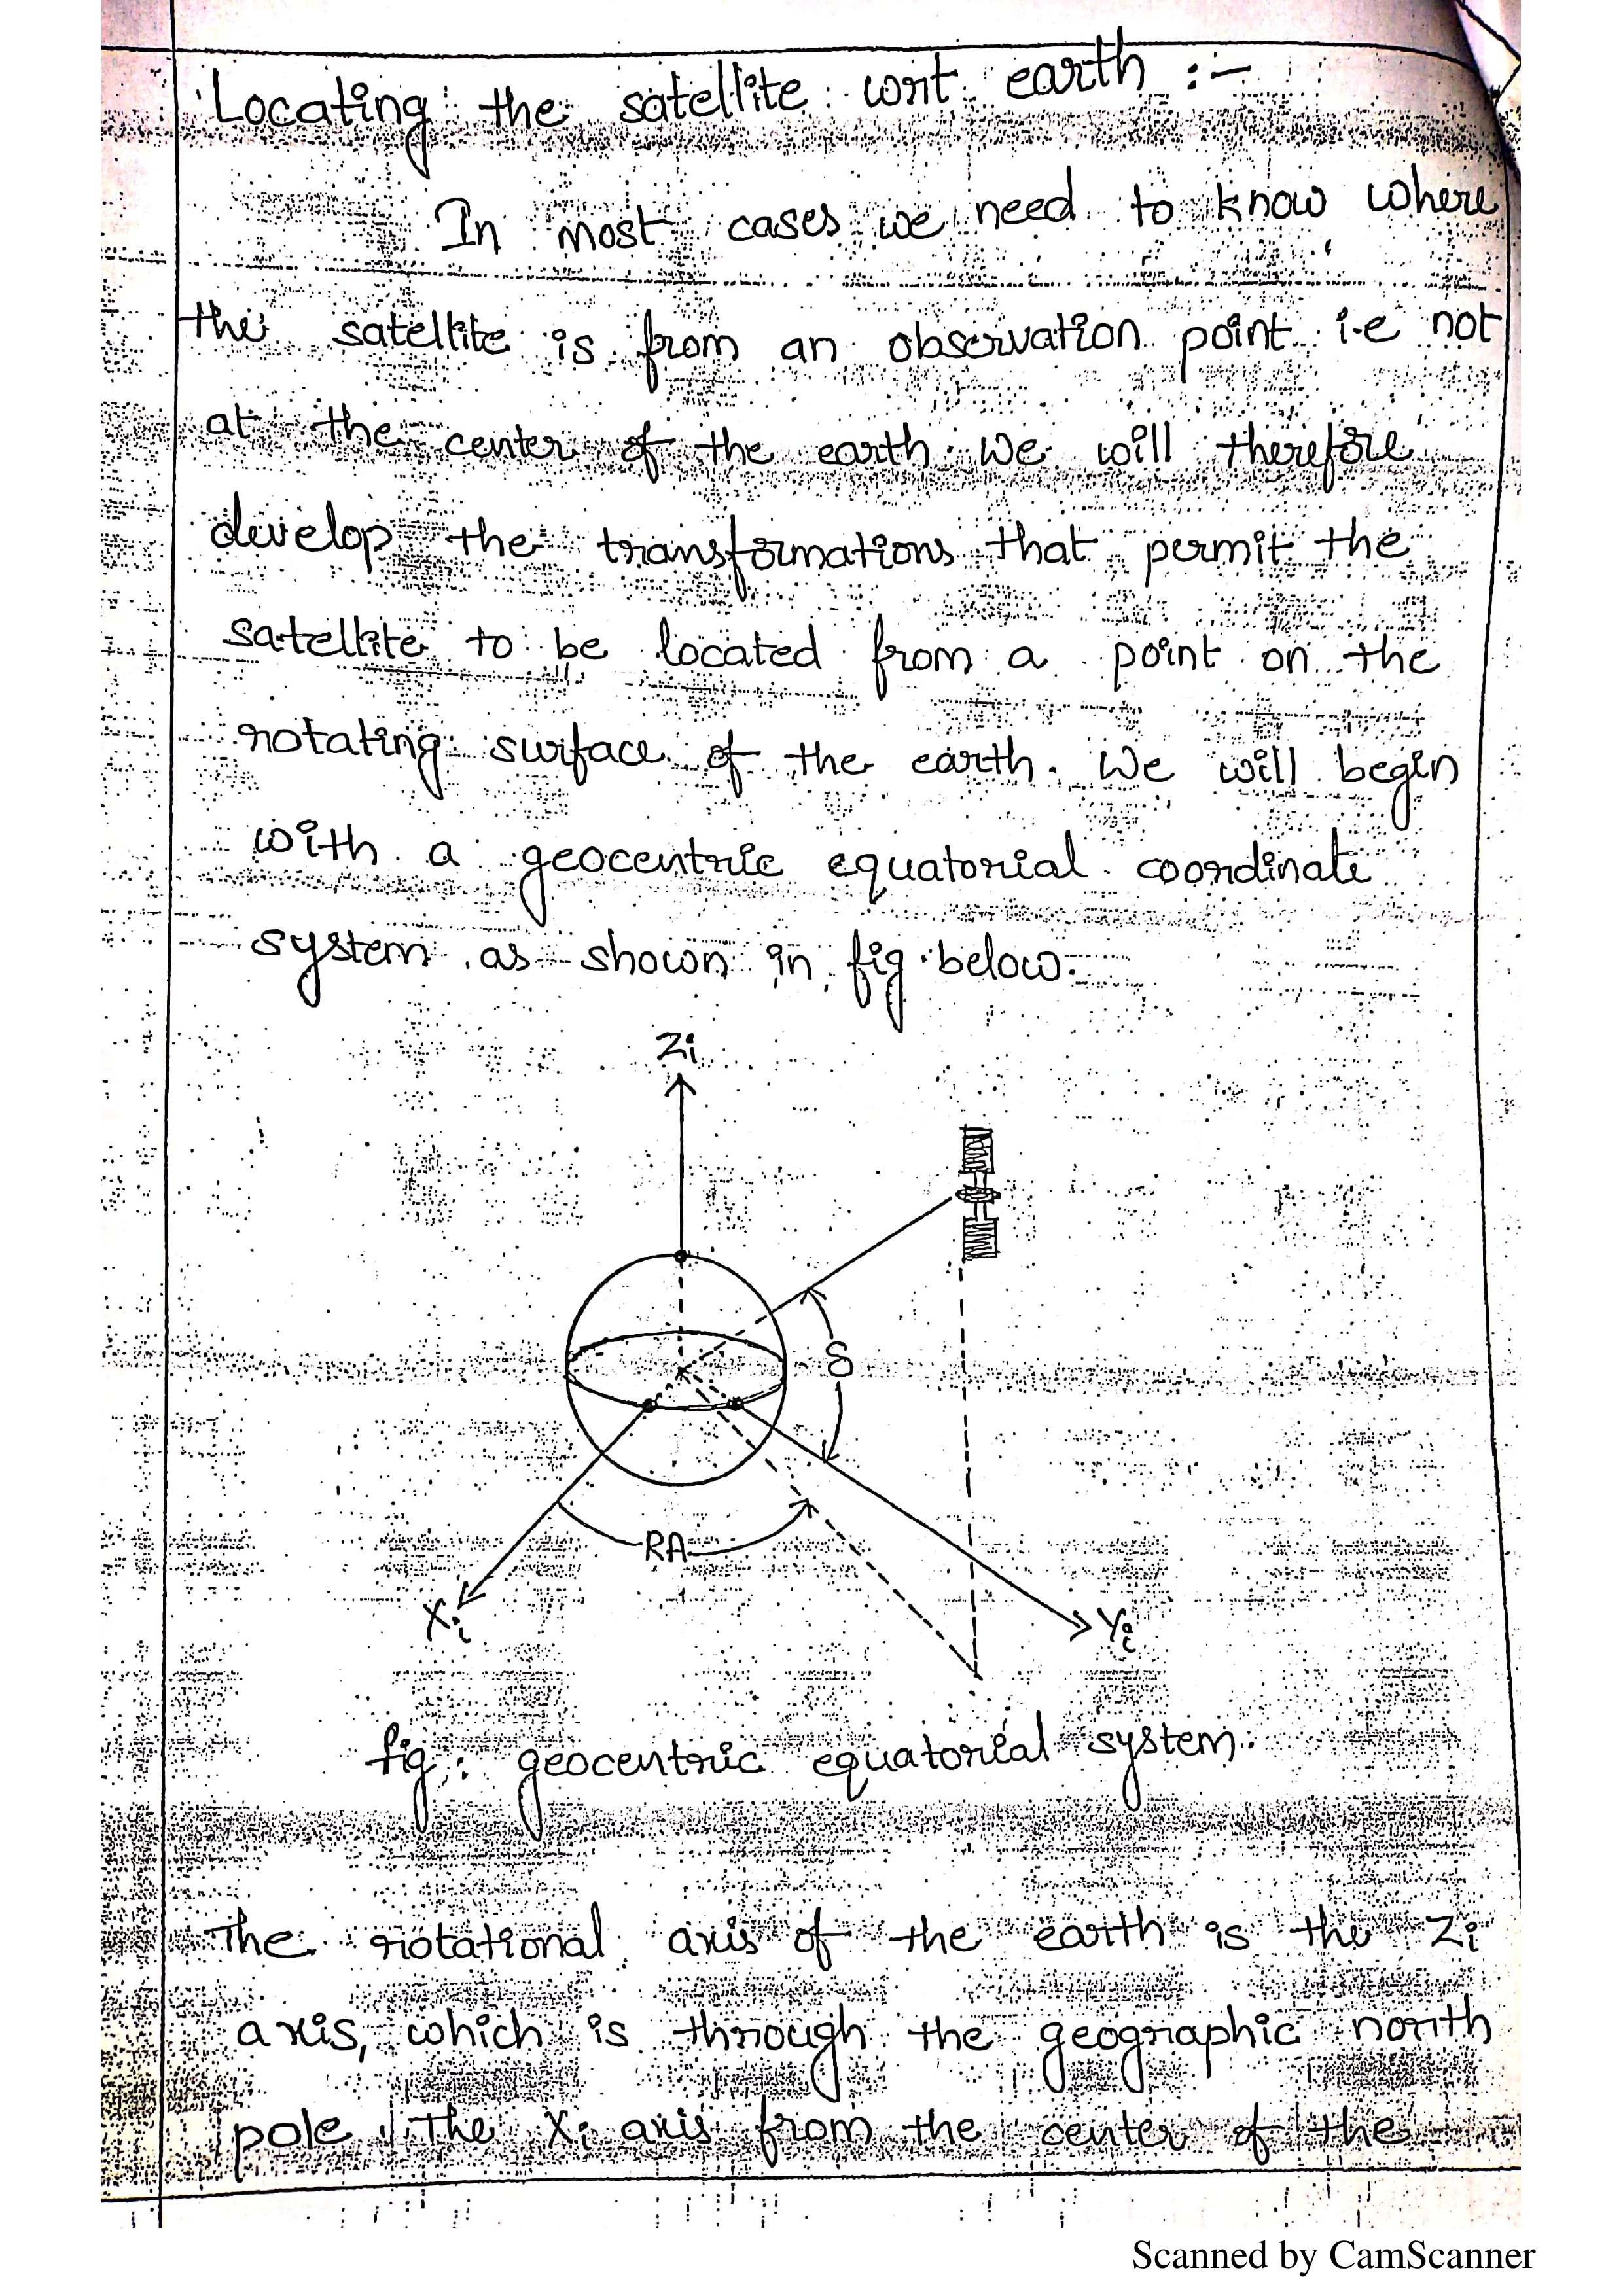 Locating the satellite wrt earth :-
In most cases we need to know where
the satellite is from an observation point i.e not
at the center of the earth. We will therefore
develop the transformations that permit the
satellite to be located from a point on the
rotating surface of the earth. We will begin
with a geocentric equatorial coordinate
system as shown in fig. below.
Zi
δ
RA
Xi
Yi
fig: geocentric equatorial system.
The rotational axis of the earth is the Zi
axis, which is through the geographic north
pole. The Xi axis from the center of the
Scanned by CamScanner